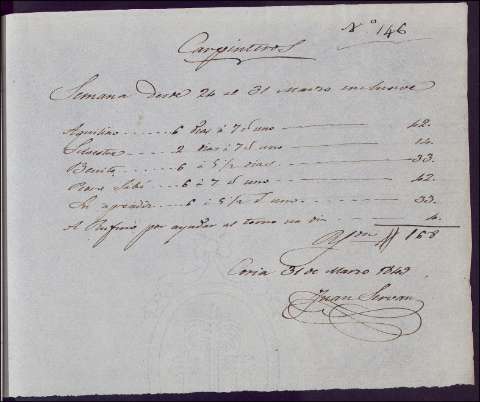 Nº 146
Carpinteros
Semana desde 24 al 31 Marzo inclusive
Aquilino 6 dias á 7 el uno 42.
Silvestre 2 dias á 7 el uno 14.
Benito 6 á 5 1/2 dias 33.
6 á 7 el uno 42
6 á 5 1/2 el uno 33.
A Rufino por ayudar al torno un dia 4.
168
Coria 31 de Marzo 1849
Juan Servan